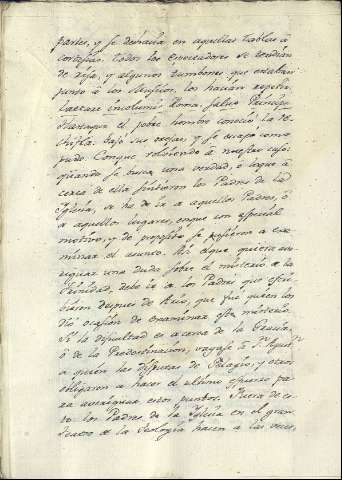 partes, y se deshacía en aquellas tablas à
cortesías. todos los Espectadores se rendían
de risa, y algunos zumbones que estaban
junto à los Musicos, los hacían repetir
laetare incolumis Roma salvo Principe
el pobre hombre conoció la re-
chifla. Bajó sus orejas, y se escapó como
pudo. Conque volviendo à nuestro caso:
quando se busca una verdad, o lo que à
cerca de ella sintieron los Padres de la
Iglesia, se ha de ir a aquellos Padres, ò
a aquellos lugares, en que con especial
motivo, y de proposito se pusieron a exa-
minar el asunto. Asi el que quiera ave-
riguar una duda sobre el misterio de la
Trinidad, debe ir a los Padres que escri-
bieron despues de Arrio, que fue quien les
dio ocasion de examinar este misterio.
Si la dificultad es acerca de la Gracia,
ò de la Predestinacion, vayase à S. Agustn
a quien las disputas de Pelagio, y otros
obligaron a hacer el ultimo esfuerzo pa-
ra averiguar estos puntos. Fuera de es-
to los Padres de la Iglesia en el gran
teatro de la Teologia hacen a las veces,